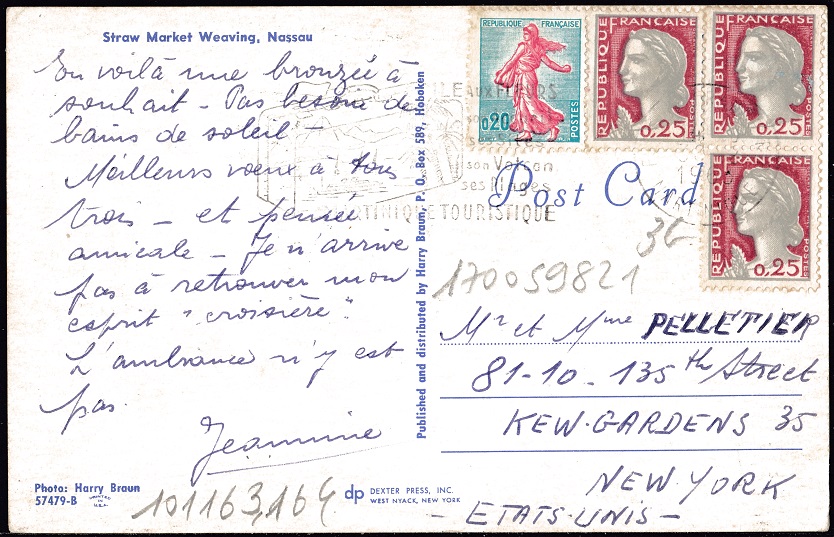 Straw Market Weaving, Nassau
En voilà une bronzée à
souhait - Pas besoin de
bains de soleil -
Meilleurs vœux à tous
trois - et pensée
amicale - Je n'arrive
pas à retrouver mon
esprit "croisière".
L'ambiance n'y est
pas.
Jeannine
Photo: Harry Braun
57479-B
PRINTED IN U.S.A.
101163,164
dp DEXTER PRESS, INC.
WEST NYACK, NEW YORK
Published and distributed by Harry Braun, P. O. Box 589, Hoboken
REPUBLIQUE FRANÇAISE
0,20
POSTES
REPUBLIQUE FRANÇAISE
0,25
POSTES
REPUBLIQUE FRANÇAISE
0,25
POSTES
REPUBLIQUE FRANÇAISE
0,25
POSTES
ILE AUX FLEURS
son Volcan
ses Plages
MARTINIQUE TOURISTIQUE
Post Card
170059821
Mr et Mme PELLETIER
81-10-135th Street
KEW-GARDENS 35
NEW YORK
- ETATS-UNIS -